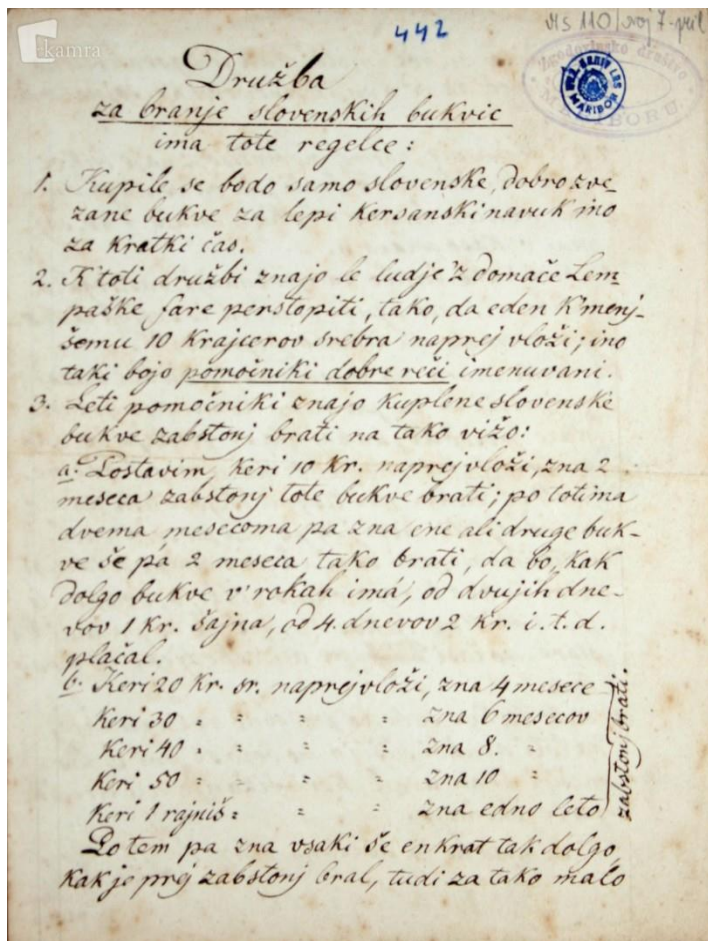 kamra
442
Zgodovinsko društvo
MARIBORU
MARIBOR
Družba
za branje slovenskih bukvic
ima tote regelce:
1. Kupile se bodo samo slovenske, dobro zve_
zane bukve za lepi kersanski navuk ino
za kratki čas.
2. K'toti družbi znajo le ludje 'z domače Lem_
paške fare perstopiti, tako, da eden k'menj_
šemu 10 krajcerov srebra naprej vloži; ino
taki bojo pomočniki dobre reči imenuvani.
3. Leti pomočniki znajo kuplene slovenske
bukve zabstonj brati na tako vižo:
a. Postavim, keri 10 kr. naprej vloži, zna 2
meseca zabstonj tote bukve brati; po totima
dvema mesecoma pa zna ene ali druge buk_
ve še pa 2 meseca tako brati, da bo, kak
dolgo bukve v'rokah imá, od dvujih dne_
vov 1 kr. šajna, od 4 dnevov 2 kr. i. t. d.
plačal.
b. Keri 20 kr. sr. naprej vloži, zna 4 mesece
Keri 30 " " " " zna 6 mesecov
Keri 40 " " " " zna 8. "
Keri 50 " " " " zna 10 "
Keri 1 rajniš " " " zna edno leto
zabstonj brati.
Po tem pa zna vsaki še enkrat tak dolgo,
kak je prej zabstonj bral, tudi za tako malo